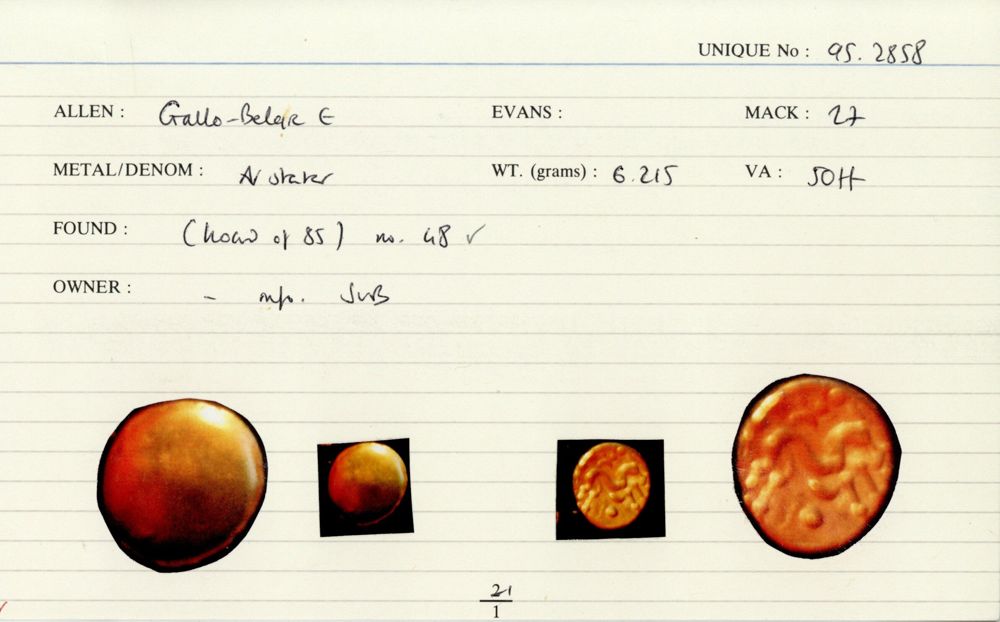 UNIQUE No : 95.2858
ALLEN : Gallo-Belgic E EVANS : MACK : 27
METAL/DENOM : AV stater WT. (grams) : 6.215 VA : 50++
FOUND : (hoard of 85) no. 48 ✓
OWNER : - info. JVB
21
1